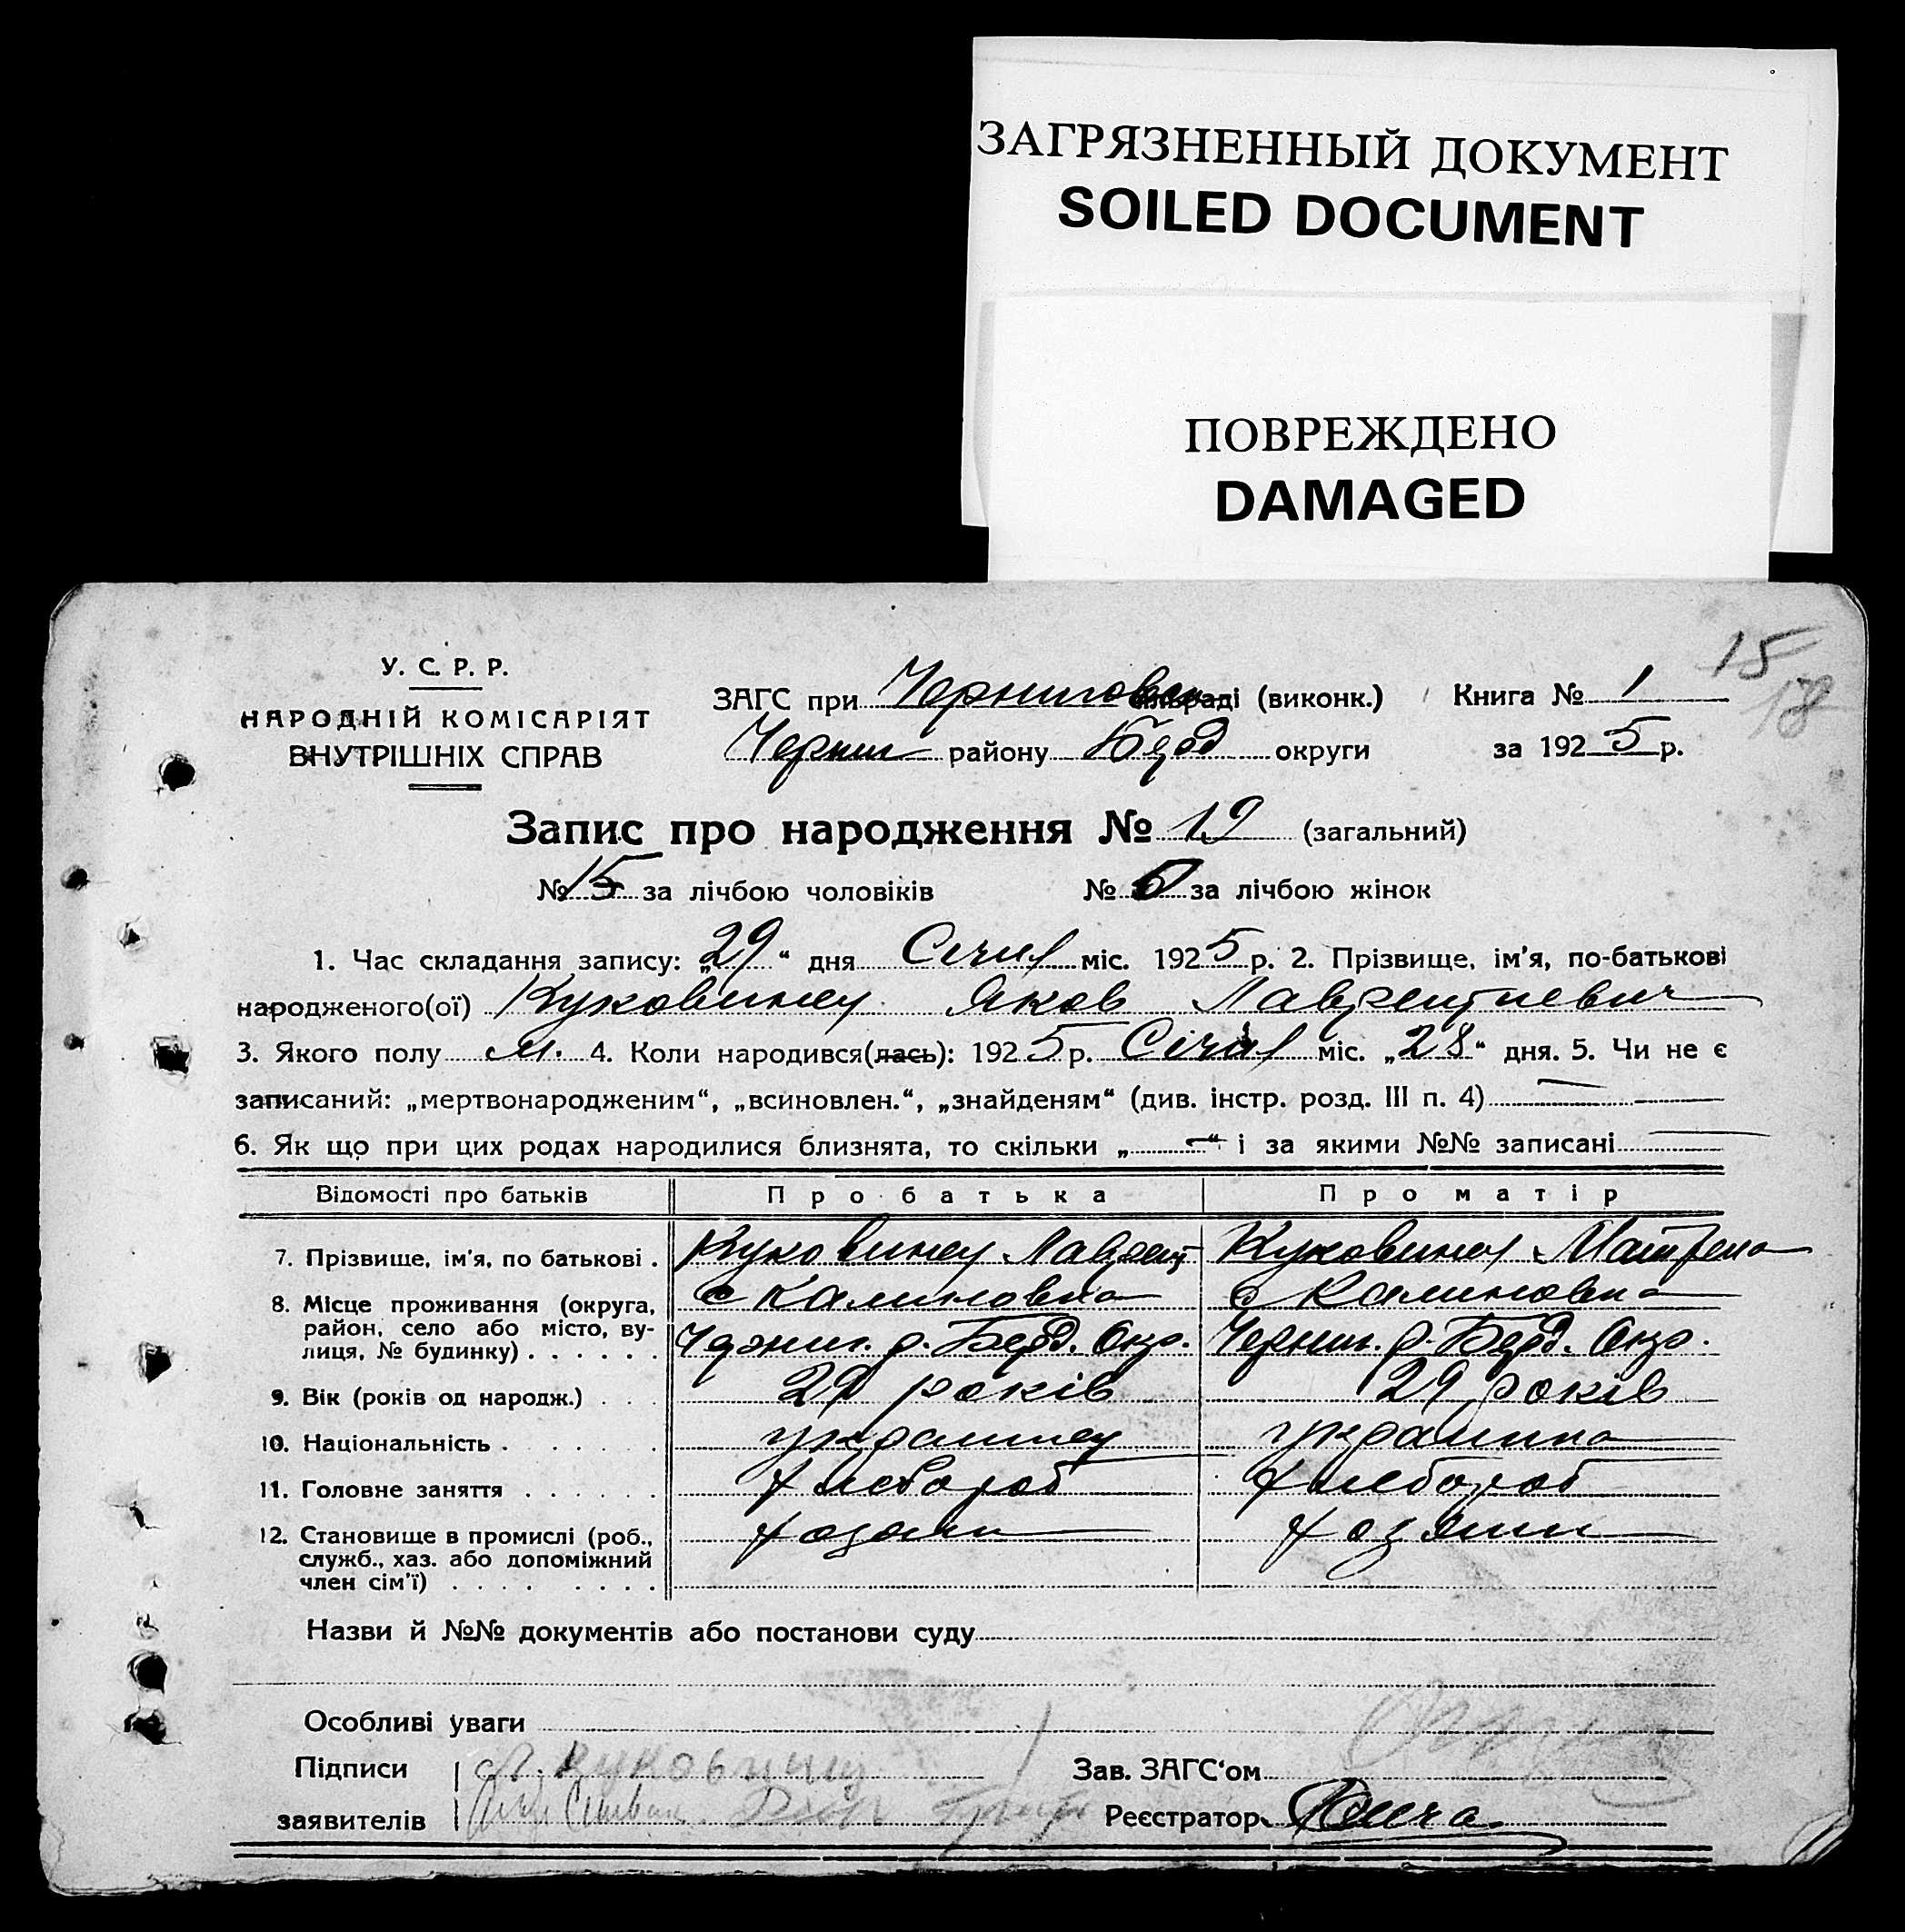 ЗАГРЯЗНЕННЫЙ ДОКУМЕНТ
SOILED DOCUMENT
ПОВРЕЖДЕНО
DAMAGED
15
18
У. С. Р. Р.
НАРОДНІЙ КОМІСАРІЯТ
ВНУТРІШНІХ СПРАВ
ЗАГС при Черниговск сільраді (виконк.) Книга № 1
Черниг району Берд округи за 1925 р.
Запис про народження № 19 (загальний)
№ 15 за лічбою чоловіків № за лічбою жінок
1. Час складання запису: „29“ дня Січня міс. 1925 р. 2. Прізвище, ім'я, по-батькові
народженого(ої) Куковинец Яков Лаврентиевич
3. Якого полу м. 4. Коли народився(лась): 1925 р. Січня міс. „28“ дня. 5. Чи не є
записаний: „мертвонародженим“, „всиновлен.“, „знайденям“ (див. інстр. розд. III п. 4) —
6. Як що при цих родах народилися близнята, то скільки „—“ і за якими №№ записані —
Відомості про батьків Про батька Про матір
7. Прізвище, ім'я, по батькові . Куковинец Лаврент Куковинец Матрена
8. Місце проживання (округа, с Калиновка с Калиновка
район, село або місто, ву-
лиця, № будинку) . . . . . . Черниг. р. Берд. Окр. Черниг. р. Берд. Окр.
9. Вік (років од народж.) . . . 29 років 29 років
10. Національність . . . . . . . украинец украинка
11. Головне заняття . . . . . . хлебороб хлебороб
12. Становище в промислі (роб., хозяин хозяин
служб., хаз. або допоміжний
член сім'ї) . . . . . . . . .
Назви й №№ документів або постанови суду
Особливі уваги
Підписи Л. Куковинец Зав. ЗАГС'ом
заявителів Реєстратор